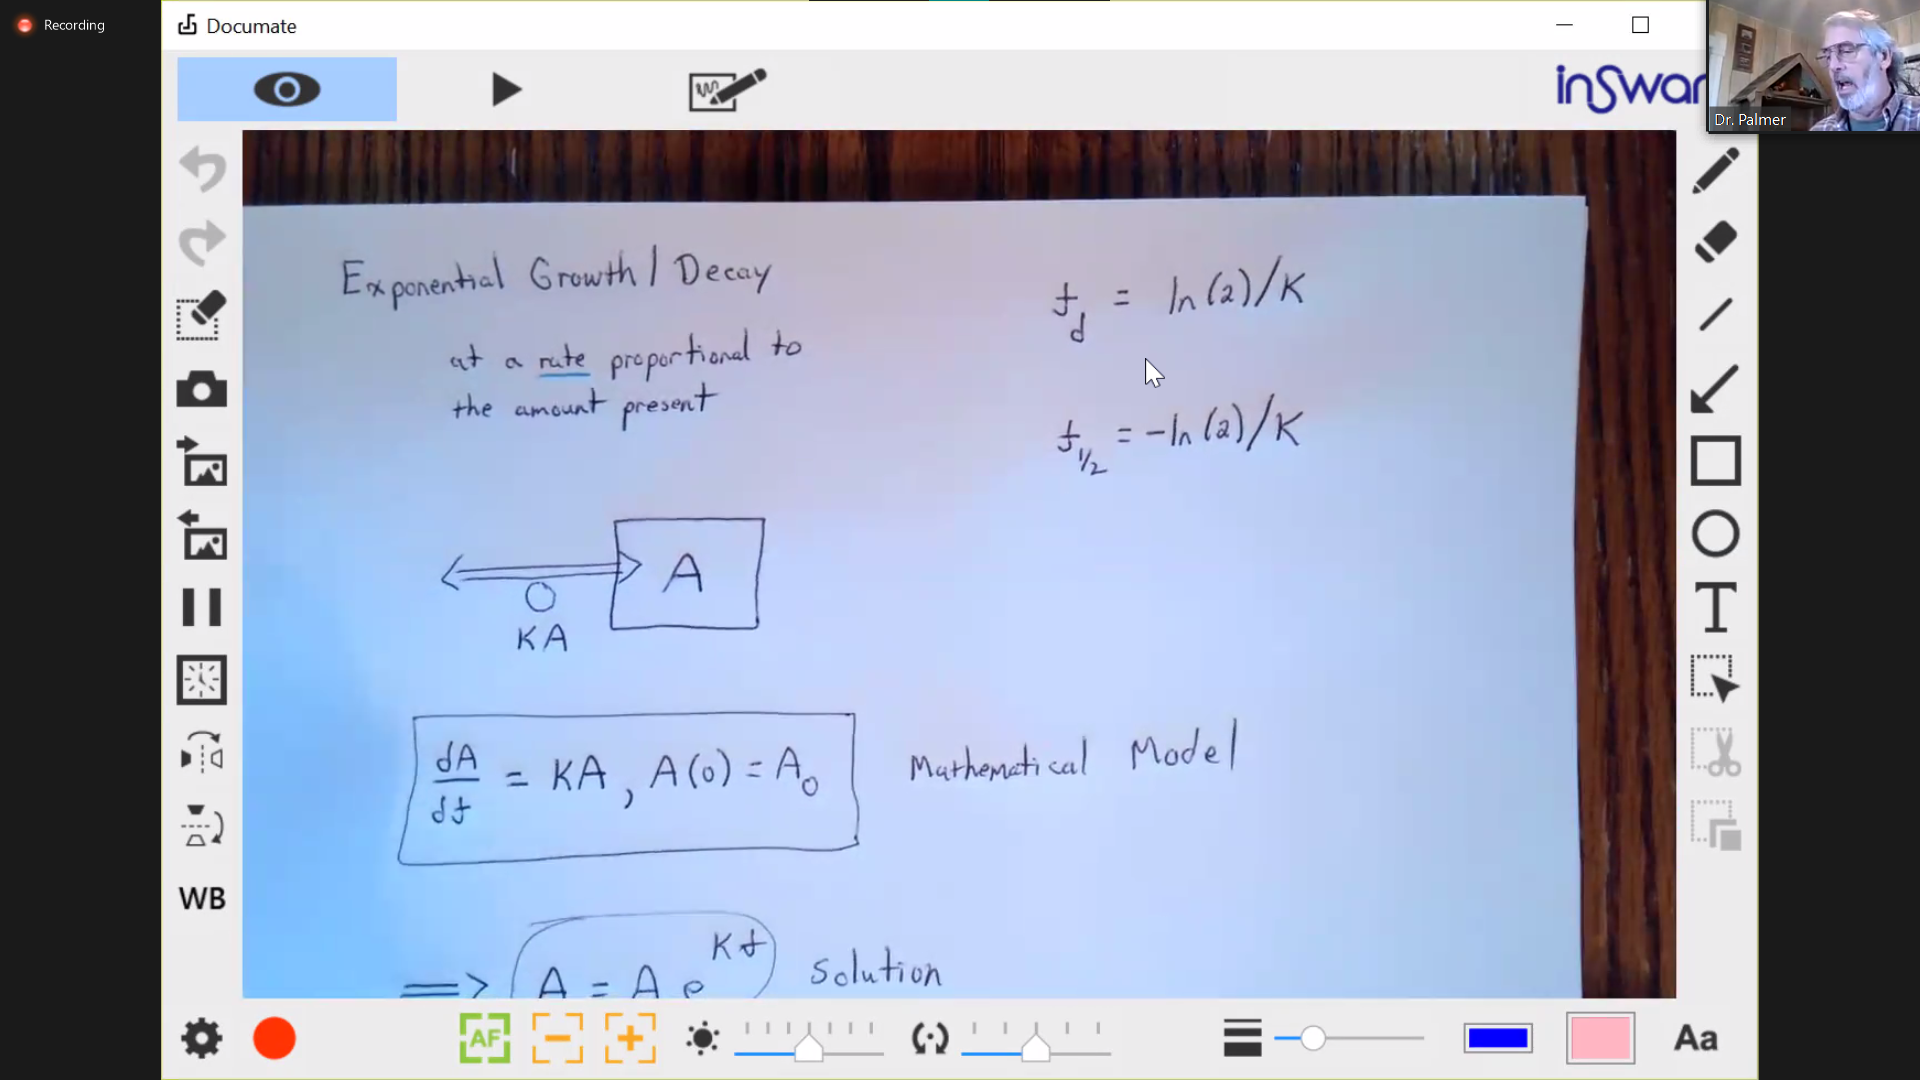 Recording
Documate
inSwa
Dr. Palmer
Exponential Growth / Decay
at a rate proportional to
the amount present
t_d = ln(2)/K
t_1/2 = -ln(2)/K
A
KA
dA/dt = KA, A(0) = A_0
Mathematical Model
=> A = A e^Kt solution
WB
T
AF
Aa